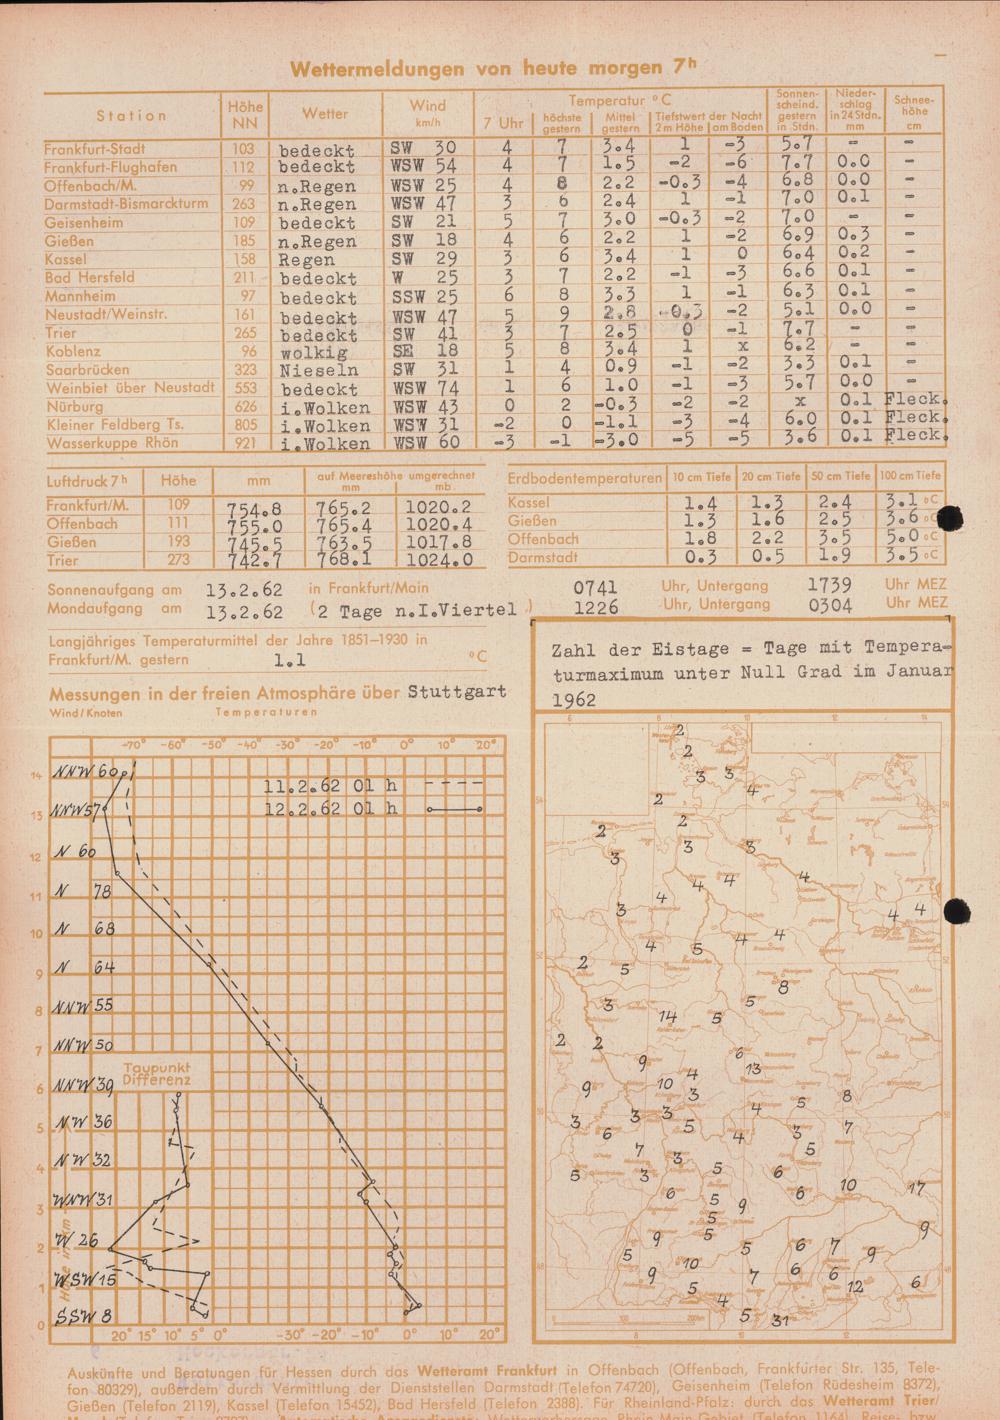 Wettermeldungen von heute morgen 7h
Station Höhe NN Wetter Wind km/h Temperatur °C Sonnenscheind. gestern in Stdn. Niederschlag in 24 Stdn. mm Schneehöhe cm
7 Uhr höchste gestern Mittel gestern Tiefstwert der Nacht 2 m Höhe am Boden
Frankfurt-Stadt 103 bedeckt SW 30 4 7 3.4 1 -3 5.7 - -
Frankfurt-Flughafen 112 bedeckt WSW 54 4 7 1.5 -2 -6 7.7 0.0 -
Offenbach/M. 99 n.Regen WSW 25 4 8 2.2 -0.3 -4 6.8 0.0 -
Darmstadt-Bismarckturm 263 n.Regen WSW 47 3 6 2.4 1 -1 7.0 0.1 -
Geisenheim 109 bedeckt SW 21 5 7 3.0 -0.3 -2 7.0 - -
Gießen 185 n.Regen SW 18 4 6 2.2 1 -2 6.9 0.3 -
Kassel 158 Regen SW 29 3 6 3.4 1 0 6.4 0.2 -
Bad Hersfeld 211 bedeckt W 25 3 7 2.2 -1 -3 6.6 0.1 -
Mannheim 97 bedeckt SSW 25 6 8 3.3 1 -1 6.3 0.1 -
Neustadt/Weinstr. 161 bedeckt WSW 47 5 9 2.8 -0.3 -2 5.1 0.0 -
Trier 265 bedeckt SW 41 3 7 2.5 0 -1 7.7 - -
Koblenz 96 wolkig SE 18 5 8 3.4 1 x 6.2 - -
Saarbrücken 323 Nieseln SW 31 1 4 0.9 -1 -2 3.3 0.1 -
Weinbiet über Neustadt 553 bedeckt WSW 74 1 6 1.0 -1 -3 5.7 0.0 -
Nürburg 626 i.Wolken WSW 43 0 2 -0.3 -2 -2 x 0.1 Fleck.
Kleiner Feldberg Ts. 805 i.Wolken WSW 31 -2 0 -1.1 -3 -4 6.0 0.1 Fleck.
Wasserkuppe Rhön 921 i.Wolken WSW 60 -3 -1 -3.0 -5 -5 3.6 0.1 Fleck.
Luftdruck 7h Höhe mm auf Meereshöhe umgerechnet mm mb
Frankfurt/M. 109 754.8 765.2 1020.2
Offenbach 111 755.0 765.4 1020.4
Gießen 193 745.5 763.5 1017.8
Trier 273 742.7 768.1 1024.0
Erdbodentemperaturen 10 cm Tiefe 20 cm Tiefe 50 cm Tiefe 100 cm Tiefe
Kassel 1.4 1.3 2.4 3.1 °C
Gießen 1.3 1.6 2.5 3.6 °C
Offenbach 1.8 2.2 3.5 5.0 °C
Darmstadt 0.3 0.5 1.9 3.5 °C
Sonnenaufgang am 13.2.62 in Frankfurt/Main 0741 Uhr, Untergang 1739 Uhr MEZ
Mondaufgang am 13.2.62 (2 Tage n.I.Viertel) 1226 Uhr, Untergang 0304 Uhr MEZ
Langjähriges Temperaturmittel der Jahre 1851–1930 in
Frankfurt/M. gestern 1.1 °C
Messungen in der freien Atmosphäre über Stuttgart
Wind/Knoten Temperaturen
-70° -60° -50° -40° -30° -20° -10° 0° 10° 20°
11.2.62 01 h
12.2.62 01 h
14 NNW 60
13 NNW 57
12 N 60
11 N 78
10 N 68
9 N 64
8 NNW 55
7 NNW 50
Taupunkt
Differenz
6 NNW 39
5 NW 36
4 NW 32
3 WNW 31
2 W 26
1 WSW 15
0 SSW 8
20° 15° 10° 5° 0° -30° -20° -10° 0° 10° 20°
Zahl der Eistage = Tage mit Tempera-
turmaximum unter Null Grad im Januar
1962
2
2
3 3
4
2
2 2
3 3 3
4 4 4
4
3 4 4
4 5 4 4
2 5
8
3 5
14 5
2 2
9 6 13
4
9 10 3 8
5
3 3 3 4
6 5 4 3 7
7 3 5
5 5 6
10 17
6 5 9 6
5 9
9 5
5 5 6 7 9
10 6 6
9 7 12 6
5
4
5 31
Auskünfte und Beratungen für Hessen durch das Wetteramt Frankfurt in Offenbach (Offenbach, Frankfurter Str. 135, Tele-
fon 80329), außerdem durch Vermittlung der Dienststellen Darmstadt (Telefon 74720), Geisenheim (Telefon Rüdesheim 8372),
Gießen (Telefon 2119), Kassel (Telefon 15452), Bad Hersfeld (Telefon 2388). Für Rheinland-Pfalz: durch das Wetteramt Trier/